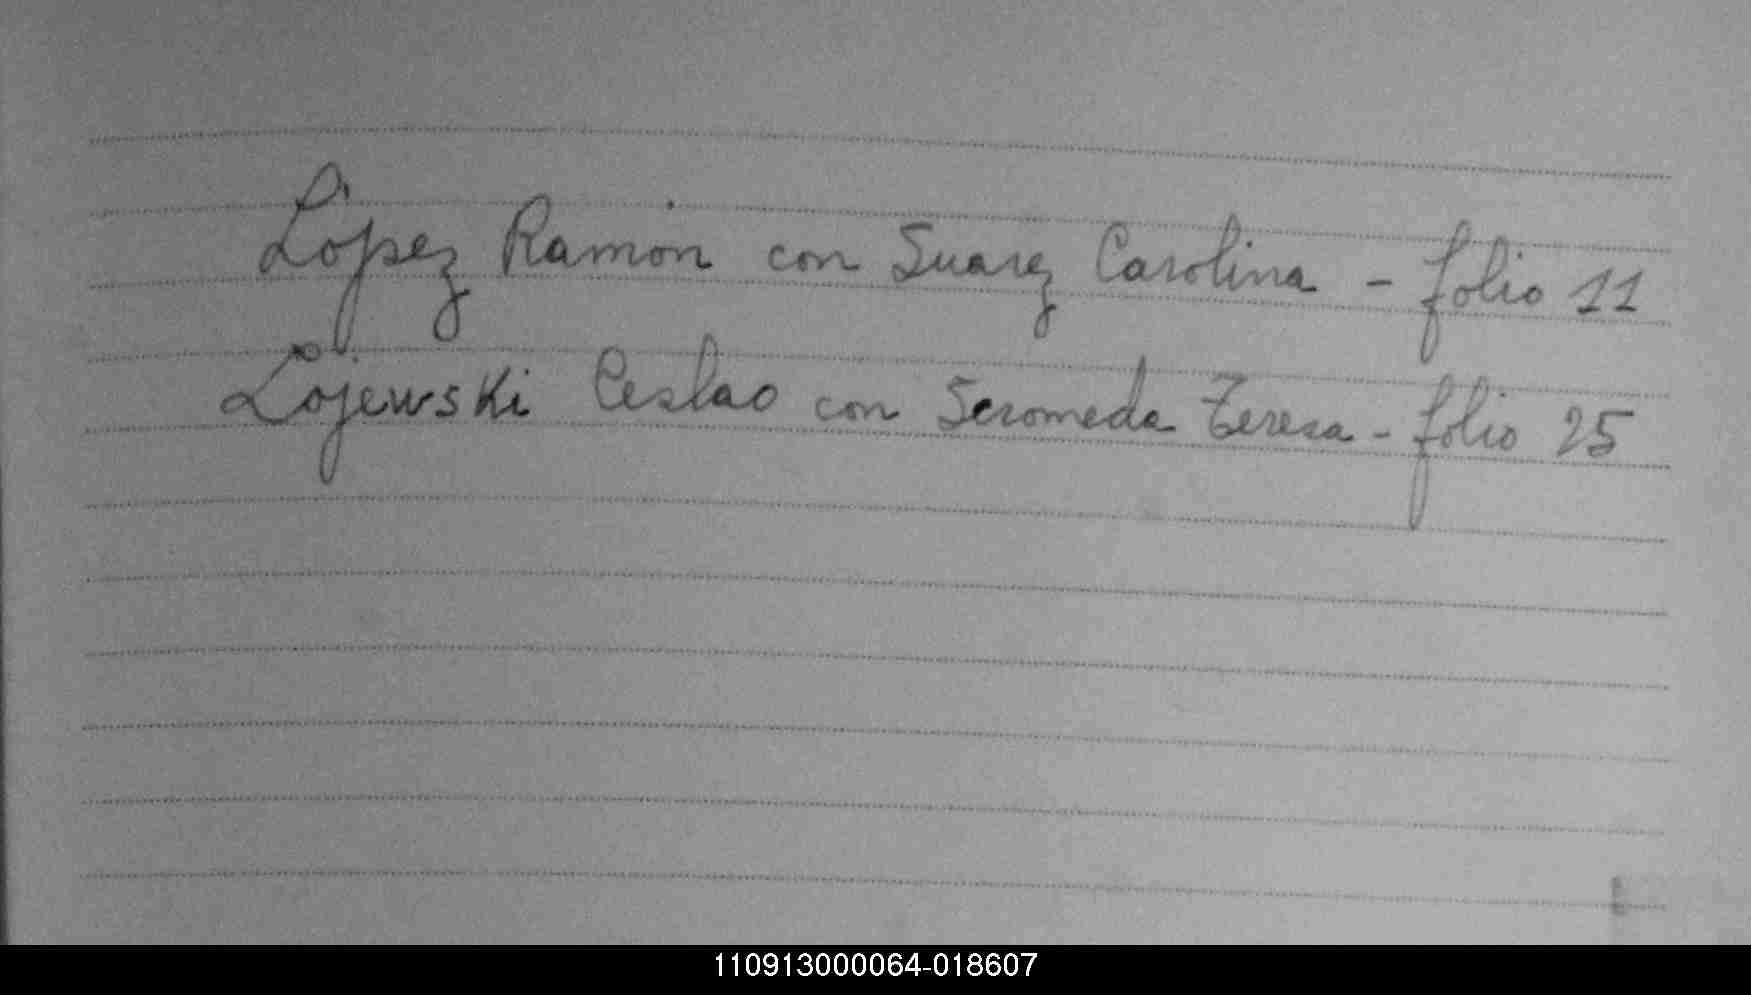 López Ramón con Suarez Carolina - folio 11
Lojewski Ceslao con Seromeda Teresa - folio 25
110913000064-018607